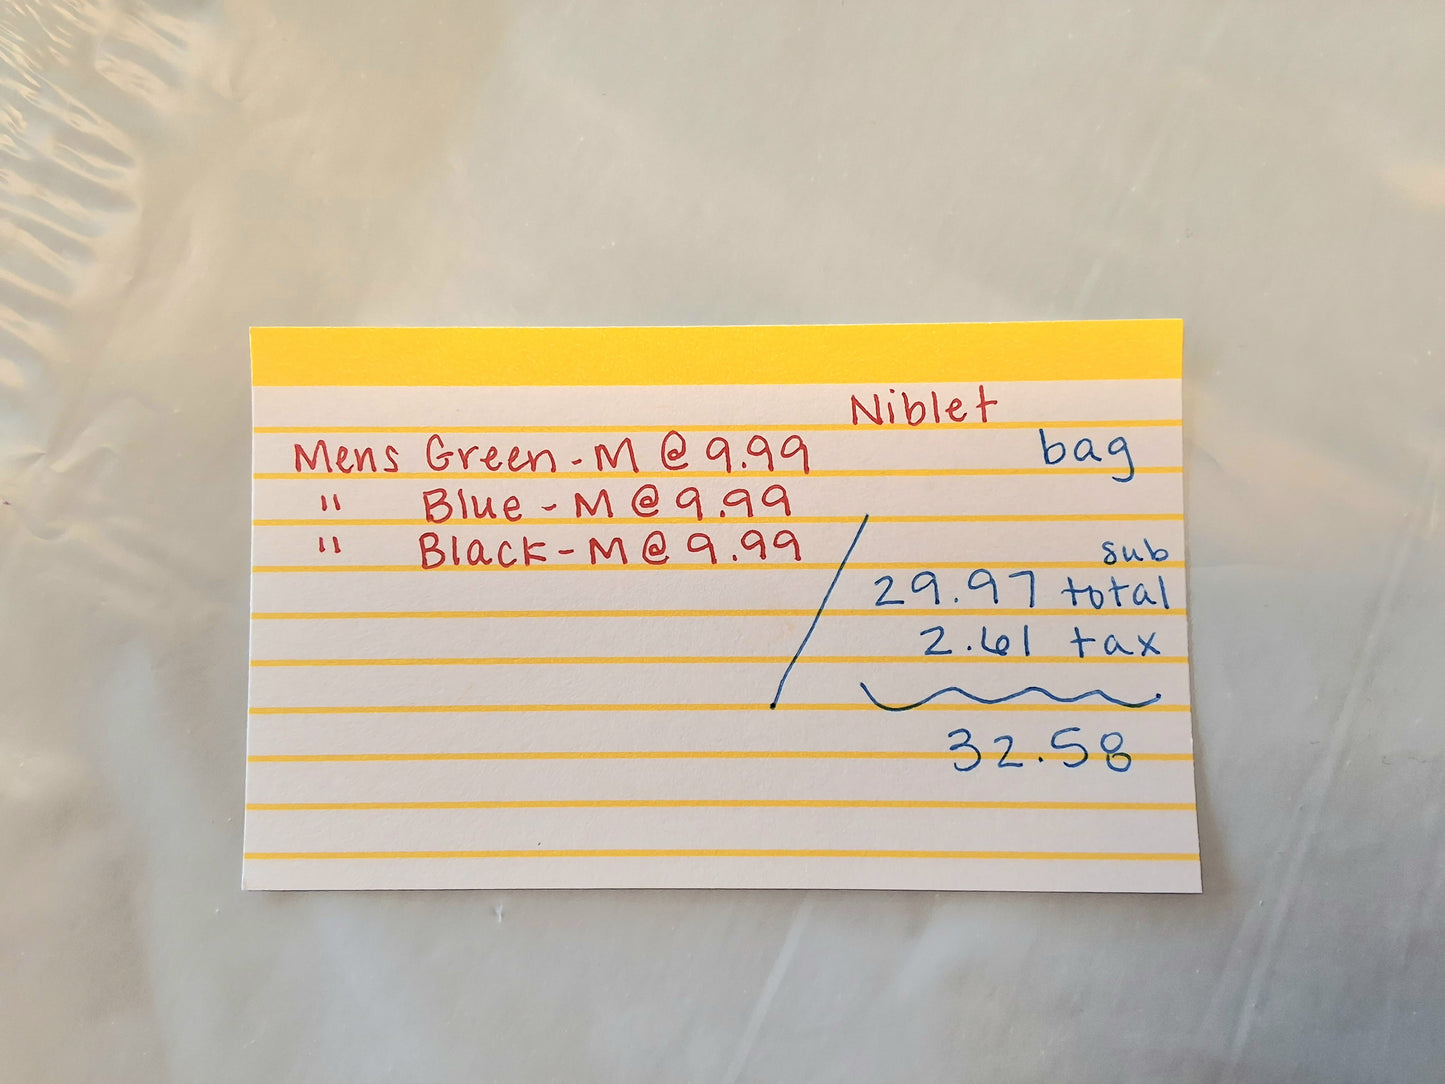 Niblet
Mens Green - M @ 9.99
bag
" Blue - M @ 9.99
" Black - M @ 9.99
sub
29.97 total
2.61 tax
32.58